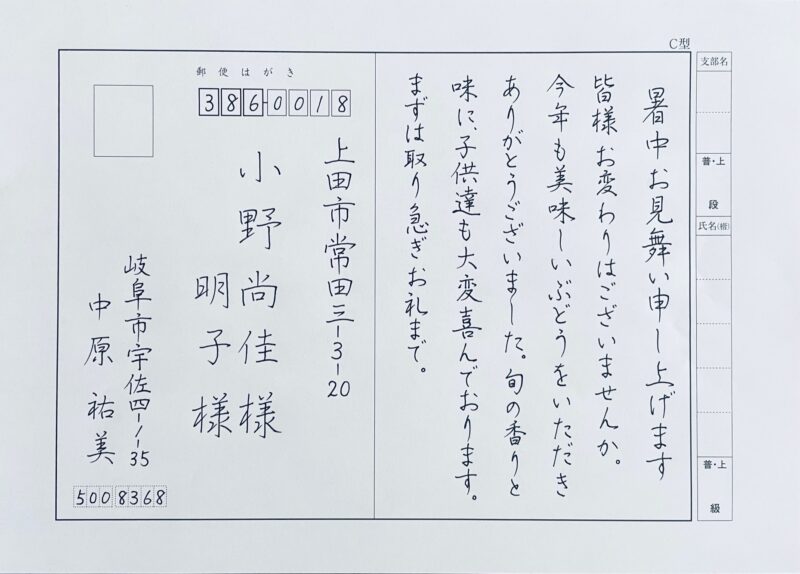 C型
支部名
普・上
段
氏名(楷)
普・上
級
暑中お見舞い申し上げます
皆様お変わりはございませんか。
今年も美味しいぶどうをいただき
ありがとうございました。旬の香りと
味に、子供達も大変喜んでおります。
まずは取り急ぎお礼まで。
郵便はがき
386-0018
上田市常田三-3-20
小野尚佳様
明子様
岐阜市宇佐四-1-35
中原祐美
5008368